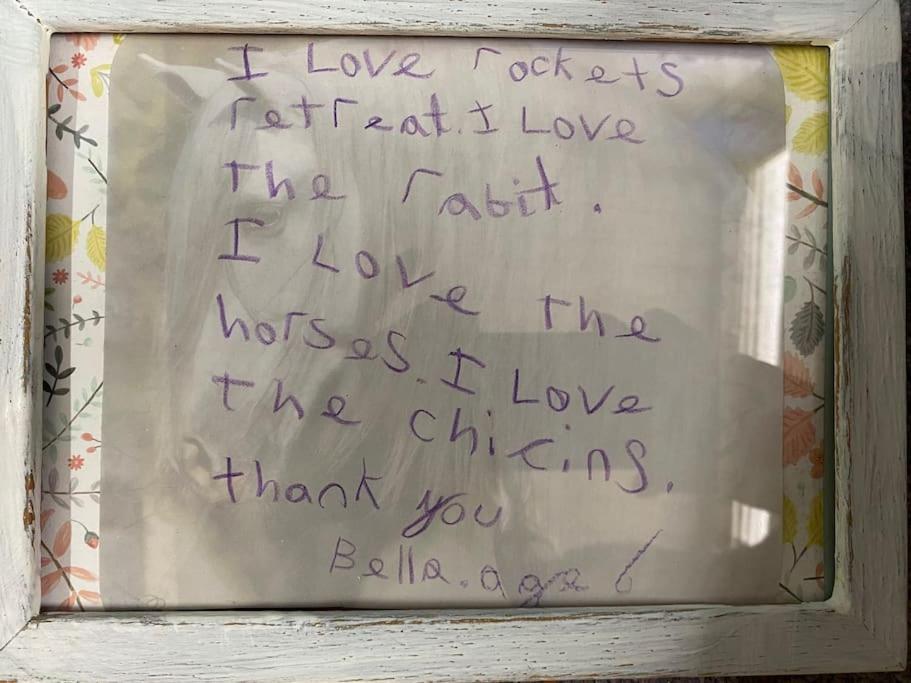 I Love rockets
retreat. I Love
the rabit.
I Love the
horses. I Love
the chicins.
thank you
Bella. age 6